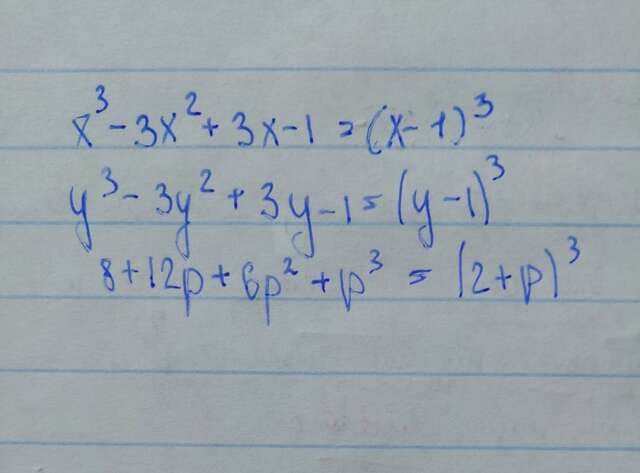 x³ - 3x² + 3x - 1 = (x - 1)³
y³ - 3y² + 3y - 1 = (y - 1)³
8 + 12p + 6p² + p³ = (2 + p)³